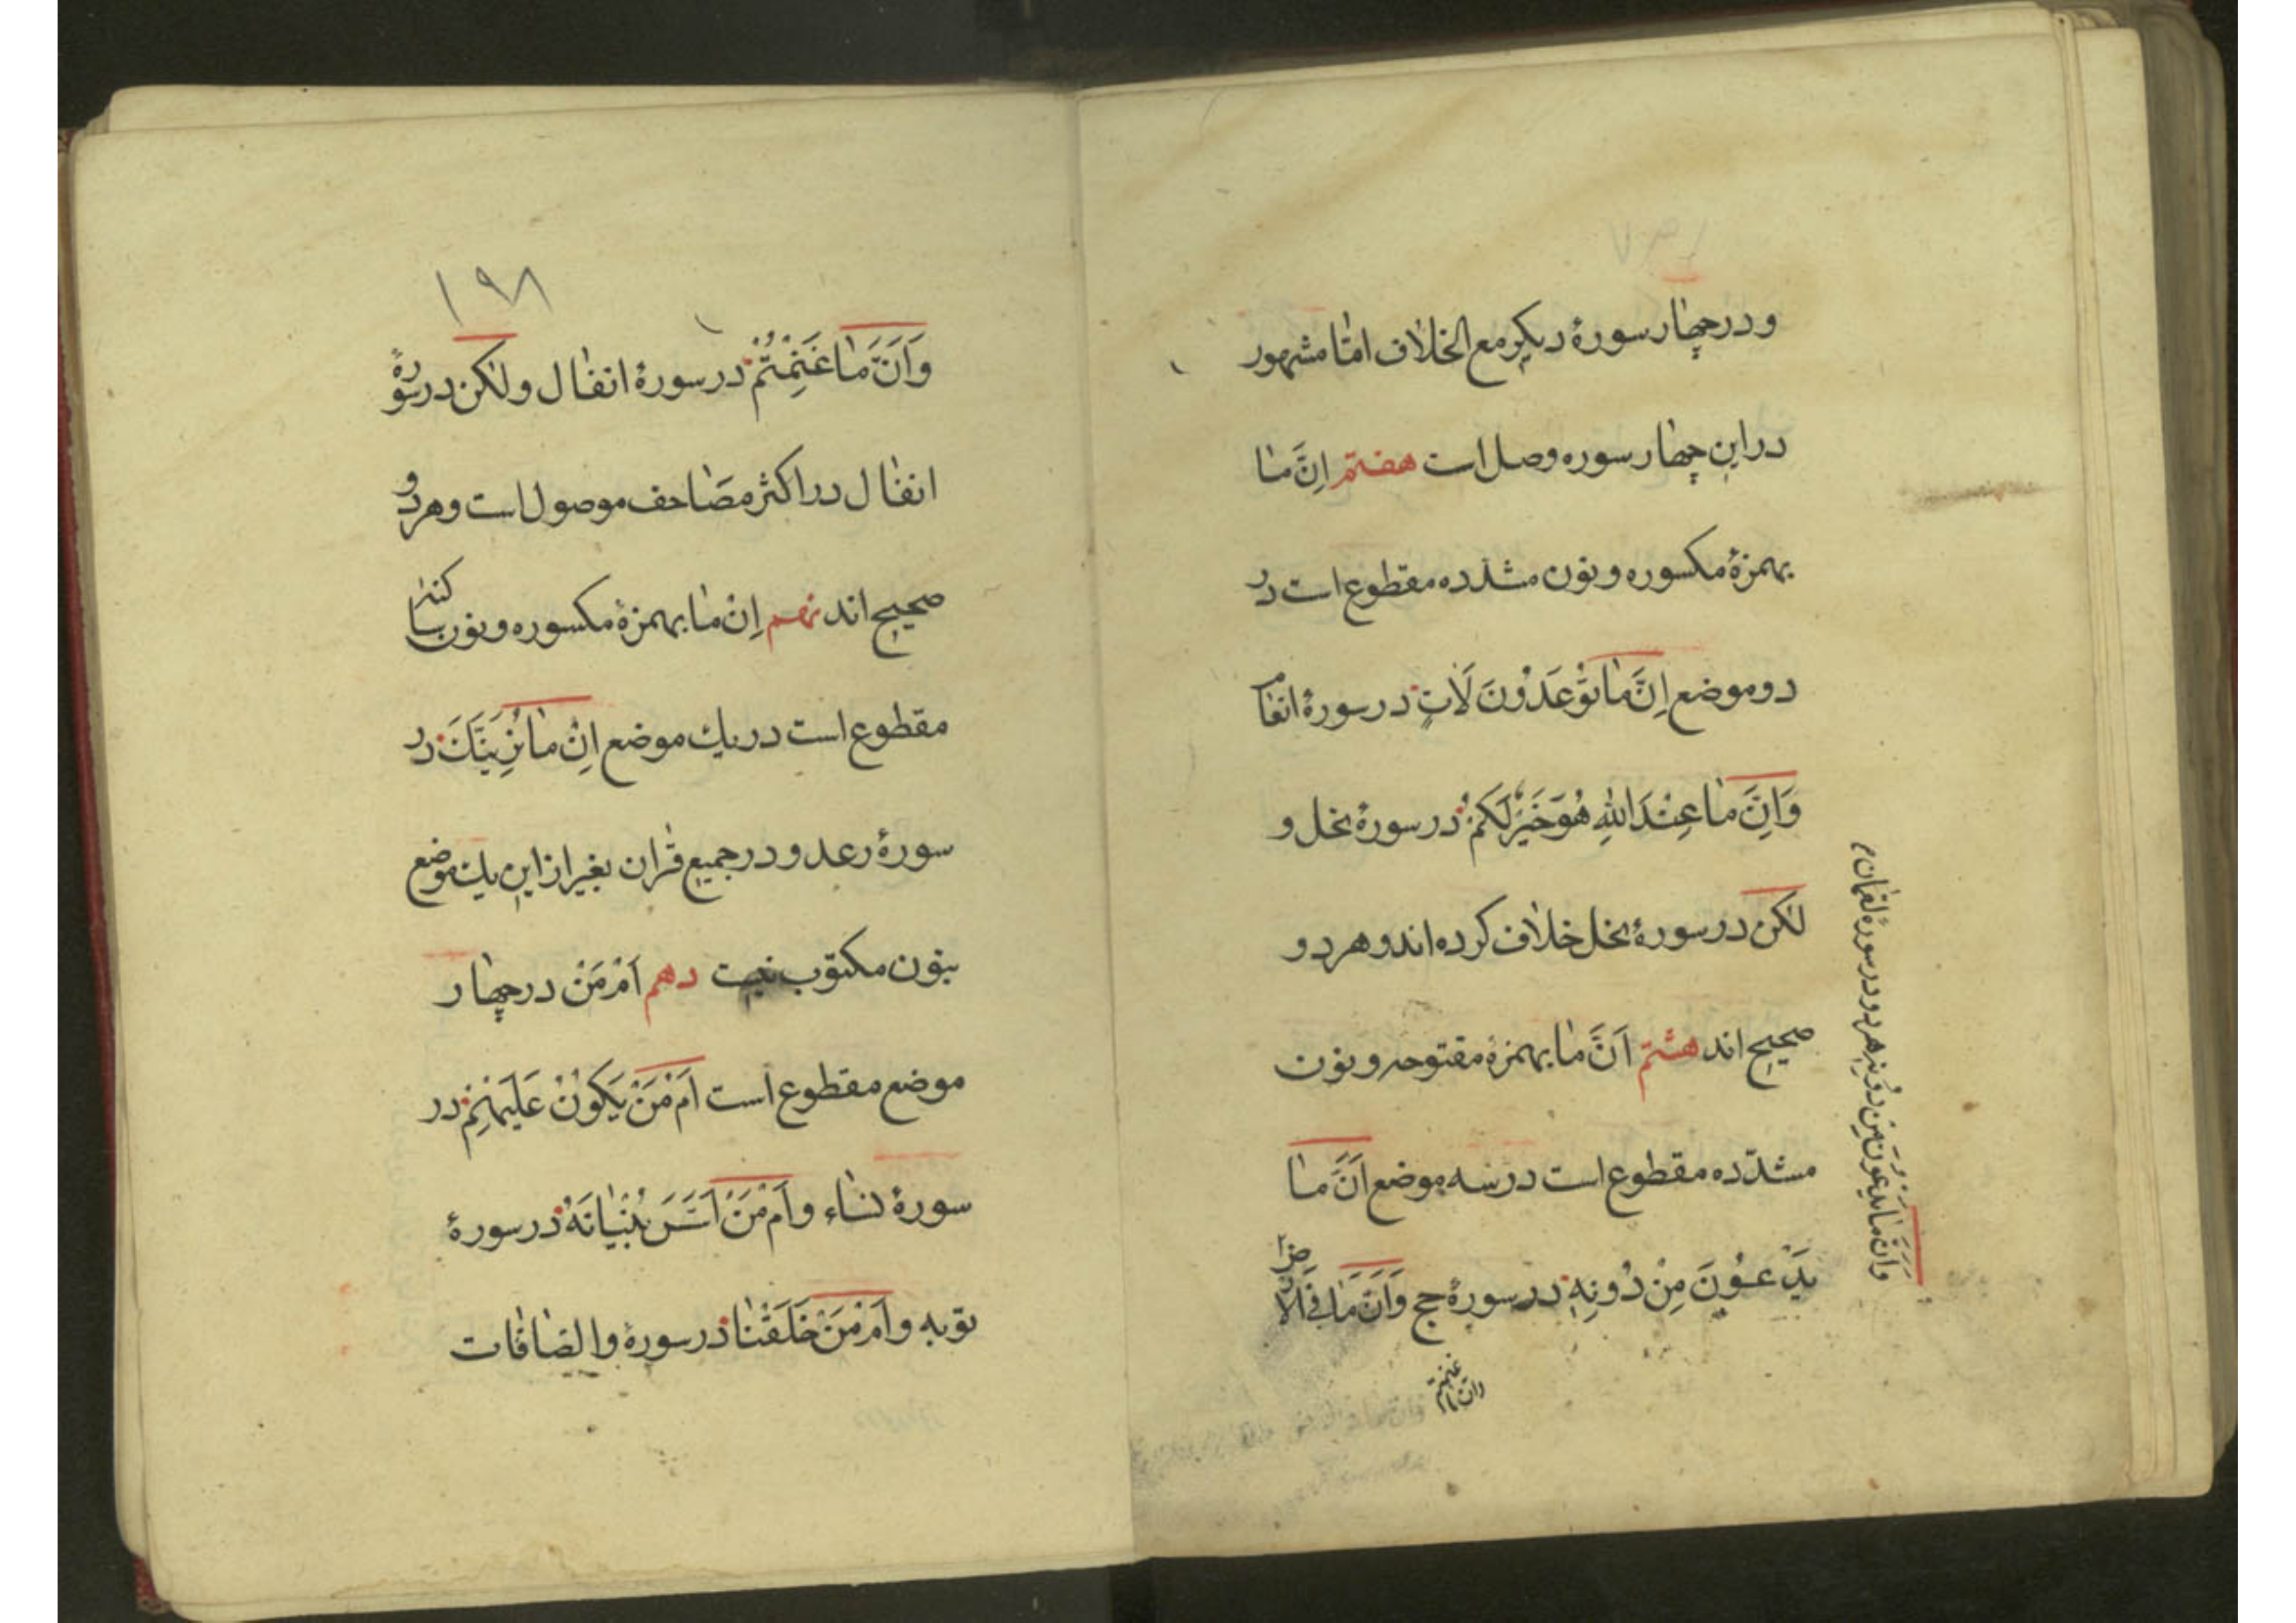 و در چهار سورهٔ دیگر مع الخلاف امّا مشهور
در این چهار سوره وصل است هفتم اِنَّ مٰا
بهمزهٔ مکسوره و نون مشدّده مقطوع است در
دو موضع اِنَّ مٰا تُوْعَدُوْنَ لَاٰتٍ در سورهٔ انعام
وَاِنَّ مٰا عِنْدَ اللّٰهِ هُوَ خَیْرٌ لَکُمْ در سورهٔ نحل و
لٰکن در سورهٔ نحل خلاف کرده اند و هر دو
صحیح اند هشتم اَنَّ مٰا بهمزهٔ مفتوحه و نون
مشدّده مقطوع است در سه موضع اَنَّ مٰا
یَدْعُوْنَ مِنْ دُوْنِهِ در سورهٔ حج وَاَنَّ مٰا فِی الْاَرْضِ
وَاَنَّ مٰا یَدْعُوْنَ مِنْ دُوْنِهِ هر دو در سورهٔ لقمان
وانّ ما غنمتم
۱۹۸
وَاَنَّ مٰا غَنِمْتُمْ در سورهٔ انفٰال و لٰکن در سورهٔ
انفٰال در اکثر مصٰاحف موصول است و هر دو
صحیح اند نهم اِنْ مٰا بهمزهٔ مکسوره و نون ساکنه
مقطوع است در یك موضع اِنْ مٰا نُرِیَنَّكَ در
سورهٔ رعد و در جمیع قرٰان بغیر از این یك موضع
بنون مکتوب نیست دهم اَمْ مَنْ در چهار
موضع مقطوع است اَمْ مَنْ یَکُوْنُ عَلَیْهِمْ در
سورهٔ نسٰاء و اَمْ مَنْ اَسَّسَ بُنْیٰانَهُ در سورهٔ
توبه و اَمْ مَنْ خَلَقْنٰا در سورهٔ والصّٰافّٰات